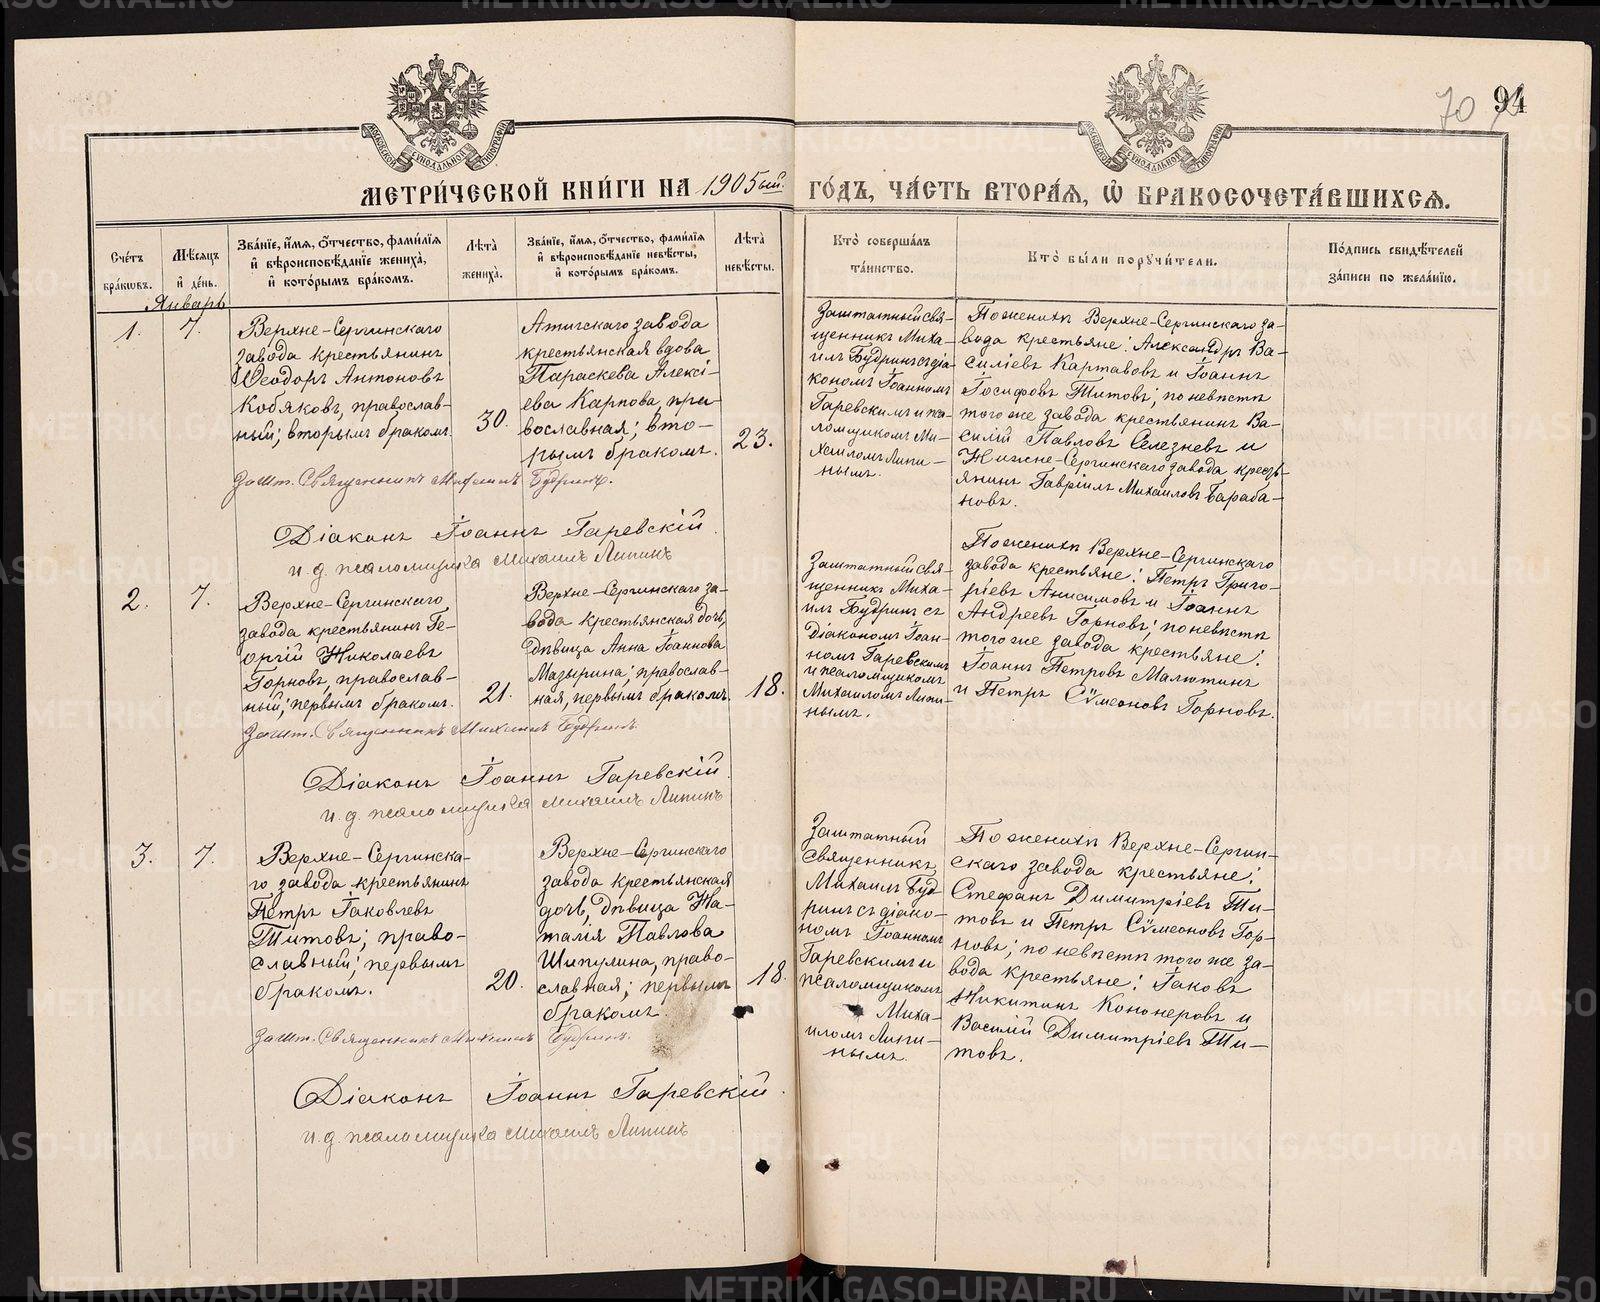 70 94
МОСКОВСКОЙ СѴНОДАЛЬНОЙ ТИПОГРАФІИ
МОСКОВСКОЙ СѴНОДАЛЬНОЙ ТИПОГРАФІИ
МЕТРИ́ЧЕСКОЙ КНИ́ГИ НА 1905ый. ГО́ДЪ, ЧА́СТЬ ВТОРА́Я, Ѡ҆ БРАКОСОЧЕТА́ВШИХСЯ.
Сче́тъ бра́кωвъ.
Мѣ́сяцъ и҆ де́нь.
Зва́нїе, и҆́мя, ѻ҆́тчество, фамилїя и҆ вѣроисповѣ́данїе жениха̀, и҆ кото́рымъ бра́комъ.
Лѣ́та жениха̀.
Зва́нїе, и҆́мя, ѻ҆́тчество, фами́лїя и҆ вѣроисповѣ́данїе невѣ́сты, и҆ кото́рымъ бра́комъ.
Лѣ́та невѣ́сты.
Кто̀ соверша́лъ та́инство.
Кто̀ бы́ли порꙋчи́тели.
По́дпись свидѣ́телей за́писи по жела́нїю.
Январь
1.
7.
Верхне-Сергинскаго
завода крестьянинъ
Ѳеодоръ Антоновъ
Кобяковъ, православ-
ный; вторымъ бракомъ.
30.
Атигскаго завода
крестьянская вдова
Параскева Алексі-
ева Карпова, пра-
вославная; вто-
рымъ бракомъ.
23.
Заштатный свя-
щенникъ Миха-
илъ Будринъ съ діа-
кономъ Іоанномъ
Гаревскимъ и пса-
ломщикомъ Ми-
хаиломъ Липи-
нымъ.
По женихѣ Верхне-Сергинскаго за-
вода крестьяне: Александръ Ва-
силіевъ Картавовъ и Іоаннъ
Іосифовъ Титовъ; по невѣстѣ
того же завода крестьянинъ Ва-
силій Павловъ Селезневъ и
Нижне-Сергинскаго завода кресть-
янинъ Гавріилъ Михаиловъ Бараба-
новъ.
Зашт. Священникъ Михаилъ Будринъ.
Діаконъ Іоаннъ Гаревскій.
и. д. псаломщика Михаилъ Липинъ
2.
7.
Верхне-Сергинскаго
завода крестьянинъ Ге-
оргій Николаевъ
Горновъ, православ-
ный; первымъ бракомъ.
21.
Верхне-Сергинскаго за-
вода крестьянская дочь,
дѣвица Анна Іоаннова
Мазырина; православ-
ная, первымъ бракомъ.
18.
Заштатный свя-
щенникъ Миха-
илъ Будринъ съ
Діакономъ Іоан-
номъ Гаревскимъ
и псаломщикомъ
Михаиломъ Липи-
нымъ.
По женихѣ Верхне-Сергинскаго
завода крестьяне: Петръ Григо-
ріевъ Анисимовъ и Іоаннъ
Андреевъ Горновъ; по невѣстѣ
того же завода крестьяне:
Іоаннъ Петровъ Малютинъ
и Петръ Сѵмеоновъ Горновъ.
Зашт. Священникъ Михаилъ Будринъ.
Діаконъ Іоаннъ Гаревскій.
и. д. псаломщика Михаилъ Липинъ
3.
7.
Верхне-Сергинска-
го завода крестьянинъ
Петръ Іаковлевъ
Титовъ; право-
славный; первымъ
бракомъ.
20.
Верхне-Сергинскаго
завода крестьянская
дочь, дѣвица На-
талія Павлова
Шипулина, право-
славная; первымъ
бракомъ.
18.
Заштатный
священникъ
Михаилъ Буд
ринъ съ діако-
номъ Іоанномъ
Гаревскимъ и
псаломщикомъ
Миха-
иломъ Липи-
нымъ.
По женихѣ Верхне-Сергин-
скаго завода крестьяне:
Стефанъ Димитріевъ Ти-
товъ и Петръ Сѵмеоновъ Гор-
новъ; по невѣстѣ того же за-
вода крестьяне: Іаковъ
Никитинъ Кононеровъ и
Василій Димитріевъ Ти-
товъ.
Зашт. Священникъ Михаилъ Будринъ.
Діаконъ Іоаннъ Гаревскій.
и. д. псаломщика Михаилъ Липинъ
METRIKI.GASO-URAL.RU